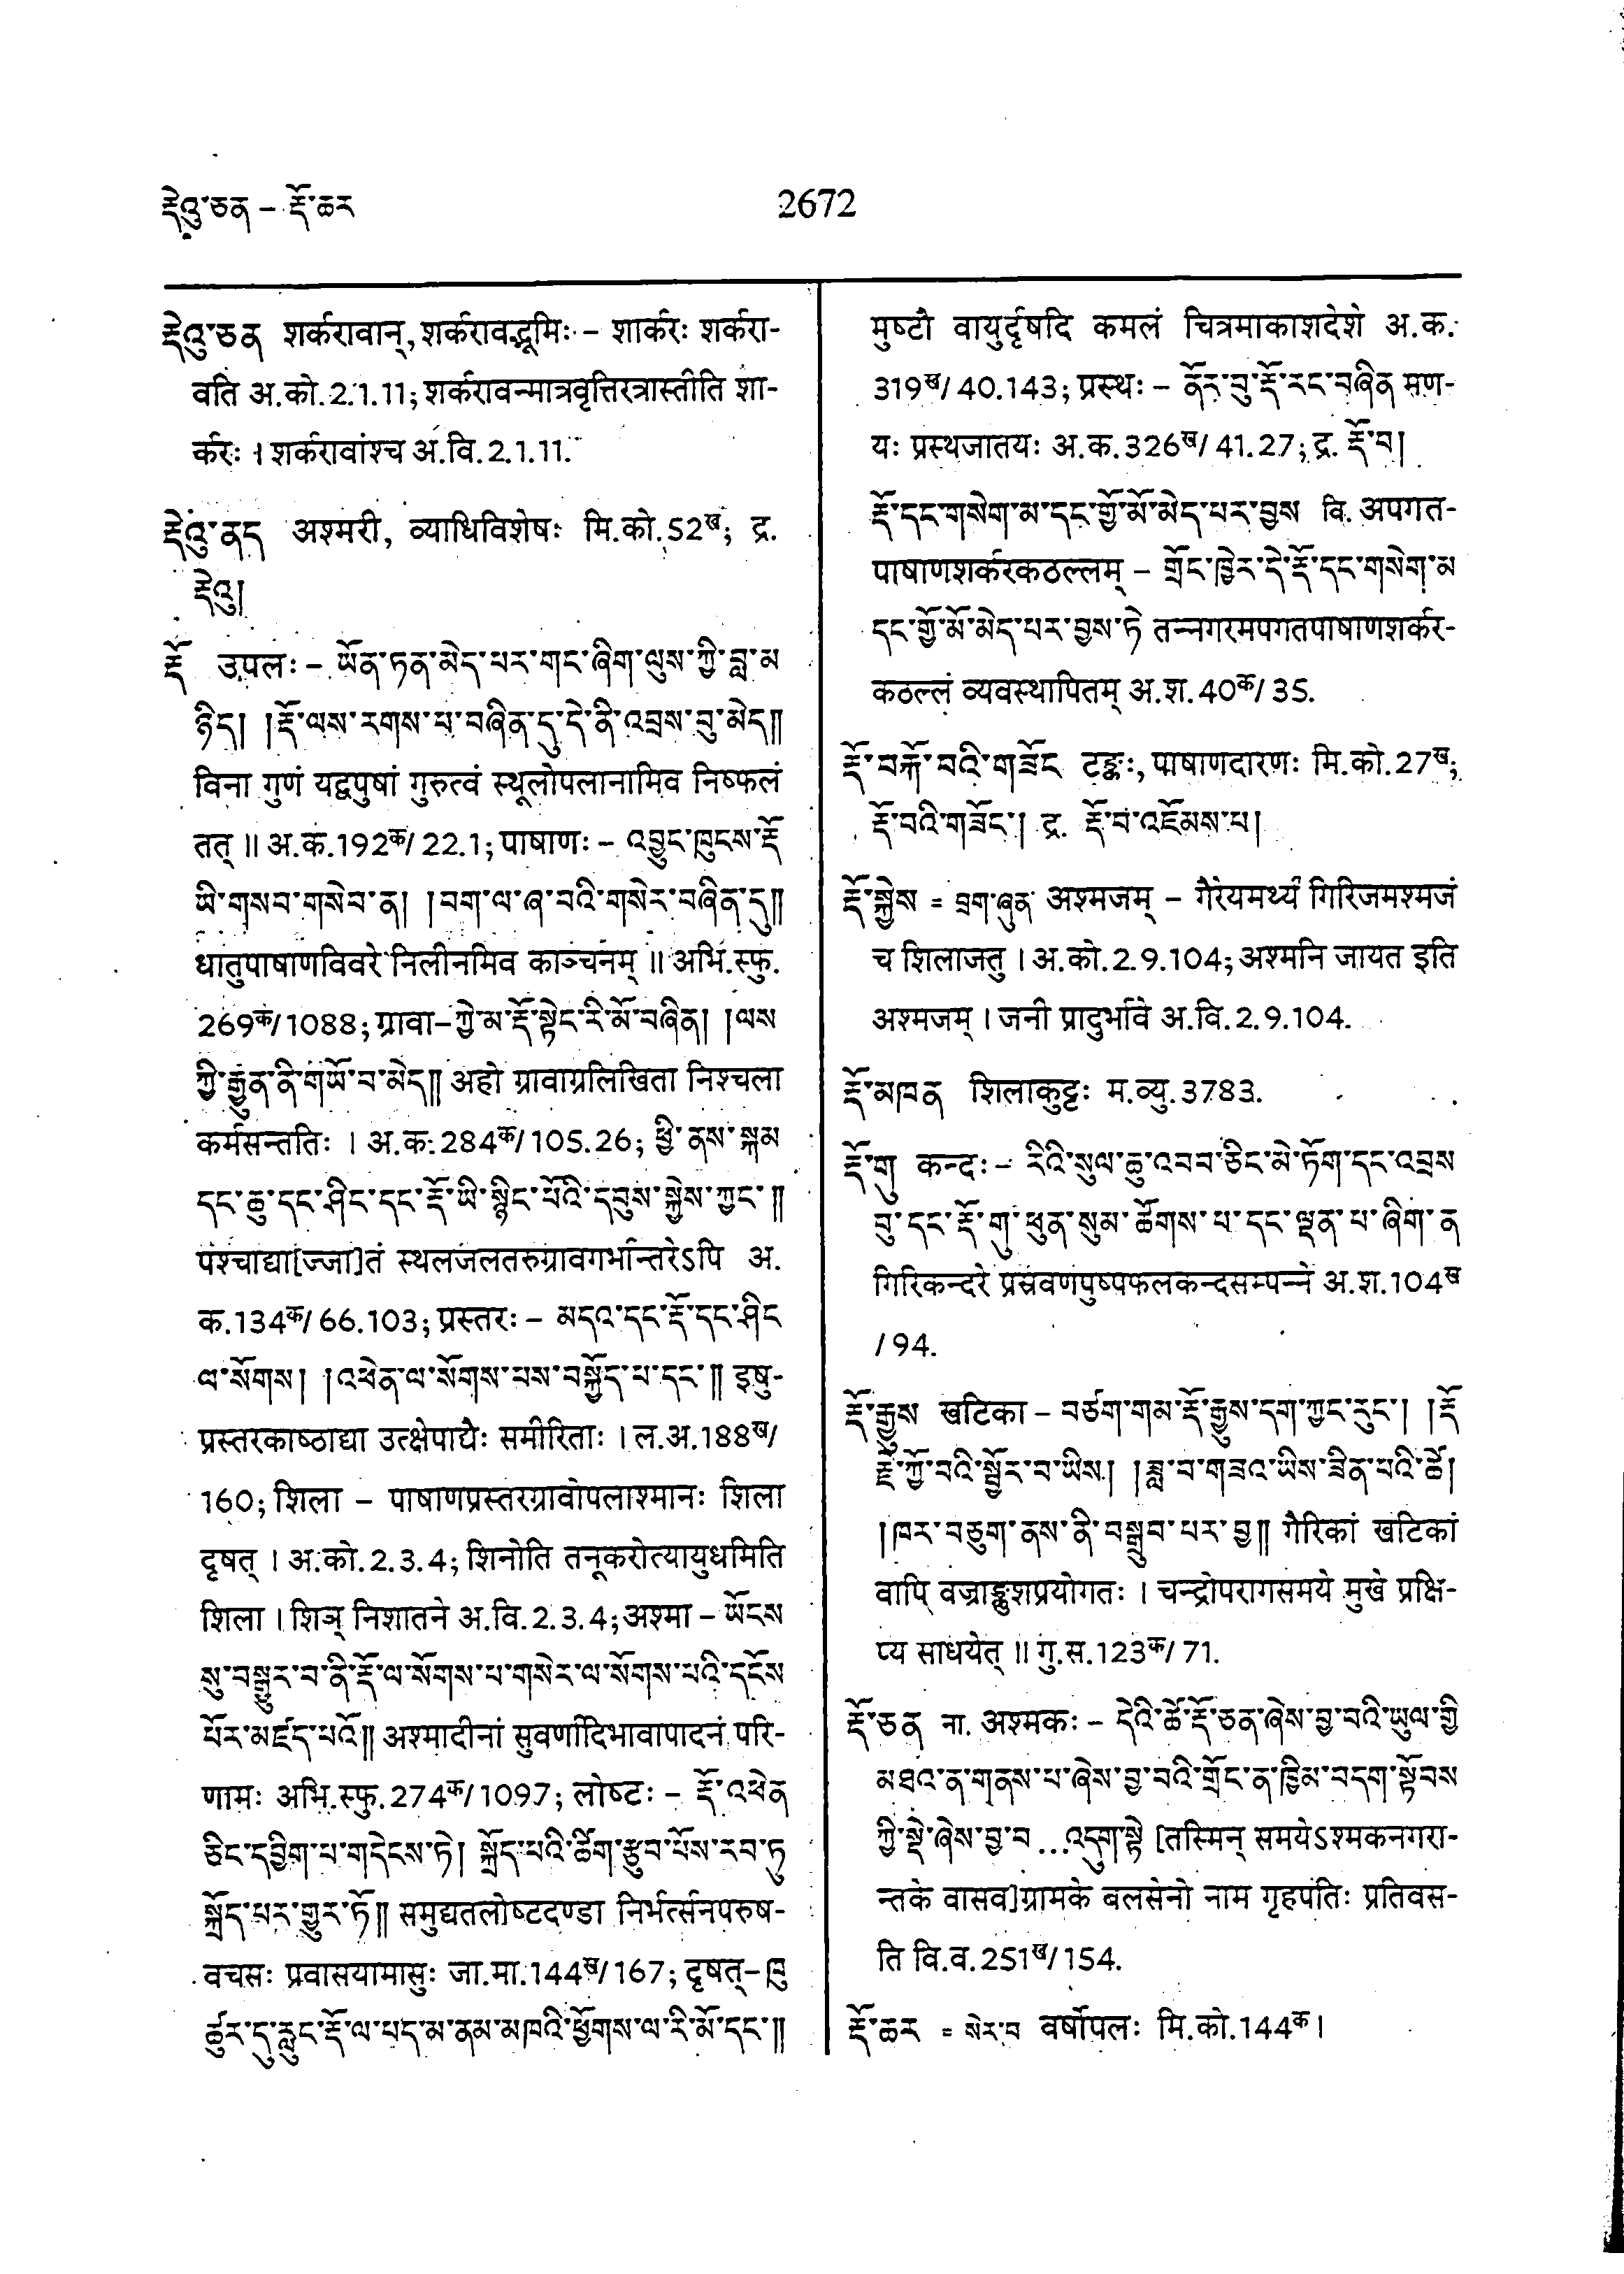 རྡེའུ་ཅན – རྡོ་ཆར
2672
རྡེའུ་ཅན शर्करावान्, शर्करावद्भूमिः – शार्करः शर्करा-
वति अ.को.2.1.11; शर्करावन्मात्रवृत्तिरत्रास्तीति शा-
र्करः । शर्करावांश्च अ.वि.2.1.11.
རྡེའུ་ནད अश्मरी, व्याधिविशेषः मि.को.52ख; द्र.
རྡེའུ།
རྡོ उपलः – ཡོན་ཏན་མེད་པར་གང་ཞིག་ལུས་ཀྱི་བླ་མ
ཉིད། །རྡོ་ལས་རགས་པ་བཞིན་དུ་དེ་ནི་འབྲས་བུ་མེད༎
विना गुणं यद्वपुषां गुरुत्वं स्थूलोपलानामिव निष्फलं
तत् ॥ अ.क.192क/22.1; पाषाणः – འབྱུང་ཁུངས་རྡོ
ཡི་གསབ་གསེབ་ན། །བག་ལ་ཞ་བའི་གསེར་བཞིན་དུ༎
धातुपाषाणविवरे निलीनमिव काञ्चनम् ॥ अभि.स्फु.
269क/1088; ग्रावा–ཀྱེ་མ་རྡོ་སྟེང་རི་མོ་བཞིན། །ལས
ཀྱི་རྒྱུན་ནི་གཡོ་བ་མེད༎ अहो ग्रावाग्रलिखिता निश्चला
कर्मसन्ततिः । अ.क.284क/105.26; ཕྱི་ནས་སྐམ
དང་ཆུ་དང་ཤིང་དང་རྡོ་ཡི་སྙིང་པོའི་དབུས་སྐྱེས་ཀྱང་༎
पश्चाद्या[ज्जा]तं स्थलजलतरुग्रावगर्भान्तरेऽपि अ.
क.134क/66.103; प्रस्तरः – མདའ་དང་རྡོ་དང་ཤིང
ལ་སོགས། །འཕེན་ལ་སོགས་པས་བསྐྱོད་པ་དང་༎ इषु-
प्रस्तरकाष्ठाद्या उत्क्षेपाद्यैः समीरिताः । ल.अ.188ख/
160; शिला – पाषाणप्रस्तरग्रावोपलाश्मानः शिला
दृषत् । अ.को.2.3.4; शिनोति तनूकरोत्यायुधमिति
शिला । शिञ् निशातने अ.वि.2.3.4; अश्मा – ཡོངས
སུ་བསྒྱུར་བ་ནི་རྡོ་ལ་སོགས་པ་གསེར་ལ་སོགས་པའི་དངོས
པོར་མཛད་པའོ༎ अश्मादीनां सुवर्णादिभावापादनं परि-
णामः अभि.स्फु.274क/1097; लोष्टः – རྡོ་འཕེན
ཅིང་དབྱིག་པ་གདེངས་ཏེ། སྐྲོད་པའི་ཚིག་རྩུབ་པོས་རབ་ཏུ
སྐྲོད་པར་གྱུར་ཏོ༎ समुद्यतलोष्टदण्डा निर्भर्त्सनपरुष-
वचसः प्रवासयामासुः जा.मा.144ख/167; दृषत्–ཁུ
ཚུར་དུ་རླུང་རྡོ་ལ་པད་མ་ནམ་མཁའི་ཕྱོགས་ལ་རི་མོ་དང་༎
मुष्टौ वायुर्दृषदि कमलं चित्रमाकाशदेशे अ.क.
319ख/40.143; प्रस्थः – ནོར་བུ་རྡོ་རང་བཞིན मण-
यः प्रस्थजातयः अ.क.326ख/41.27; द्र. རྡོ་བ།
རྡོ་དང་གསེག་མ་དང་གྱོ་མོ་མེད་པར་བྱས वि. अपगत-
पाषाणशर्करकठल्लम् – གྲོང་ཁྱེར་དེ་རྡོ་དང་གསེག་མ
དང་གྱོ་མོ་མེད་པར་བྱས་ཏེ तन्नगरमपगतपाषाणशर्कर-
कठल्लं व्यवस्थापितम् अ.श.40क/35.
རྡོ་བརྐོ་བའི་གཟོང टङ्कः, पाषाणदारणः मि.को.27ख;
རྡོ་བའི་གཟོང་། द्र. རྡོ་བ་འཇོམས་པ།
རྡོ་སྐྱེས = བྲག་ཞུན अश्मजम् – गैरेयमर्थ्यं गिरिजमश्मजं
च शिलाजतु । अ.को.2.9.104; अश्मनि जायत इति
अश्मजम् । जनी प्रादुर्भावे अ.वि.2.9.104.
རྡོ་མཁན शिलाकुट्टः म.व्यु.3783.
རྡོ་གུ कन्दः – རིའི་སུལ་ཆུ་འབབ་ཅིང་མེ་ཏོག་དང་འབྲས
བུ་དང་རྡོ་གུ་ཕུན་སུམ་ཚོགས་པ་དང་ལྡན་པ་ཞིག་ན
गिरिकन्दरे प्रस्रवणपुष्पफलकन्दसम्पन्ने अ.श.104ख
/94.
རྡོ་རྒྱུས खटिका – བཙག་གམ་རྡོ་རྒྱུས་དག་ཀྱང་རུང་། །རྡོ
རྗེ་ཀྱོ་བའི་སྦྱོར་བ་ཡིས། །ཟླ་བ་གཟའ་ཡིས་ཟིན་པའི་ཚེ།
།ཁར་བཅུག་ནས་ནི་བསྒྲུབ་པར་བྱ༎ गैरिकां खटिकां
वापि वज्राङ्कुशप्रयोगतः । चन्द्रोपरागसमये मुखे प्रक्षि-
प्य साधयेत् ॥ गु.स.123क/71.
རྡོ་ཅན ना. अश्मकः – དེའི་ཚེ་རྡོ་ཅན་ཞེས་བྱ་བའི་ཡུལ་གྱི
མཐའ་ན་གནས་པ་ཞེས་བྱ་བའི་གྲོང་ན་ཁྱིམ་བདག་སྟོབས
ཀྱི་སྡེ་ཞེས་བྱ་བ...འདུག་སྟེ [तस्मिन् समयेऽश्मकनगरा-
न्तके वासव]ग्रामके बलसेनो नाम गृहपतिः प्रतिवस-
ति वि.व.251ख/154.
རྡོ་ཆར = སེར་བ वर्षोपलः मि.को.144क।